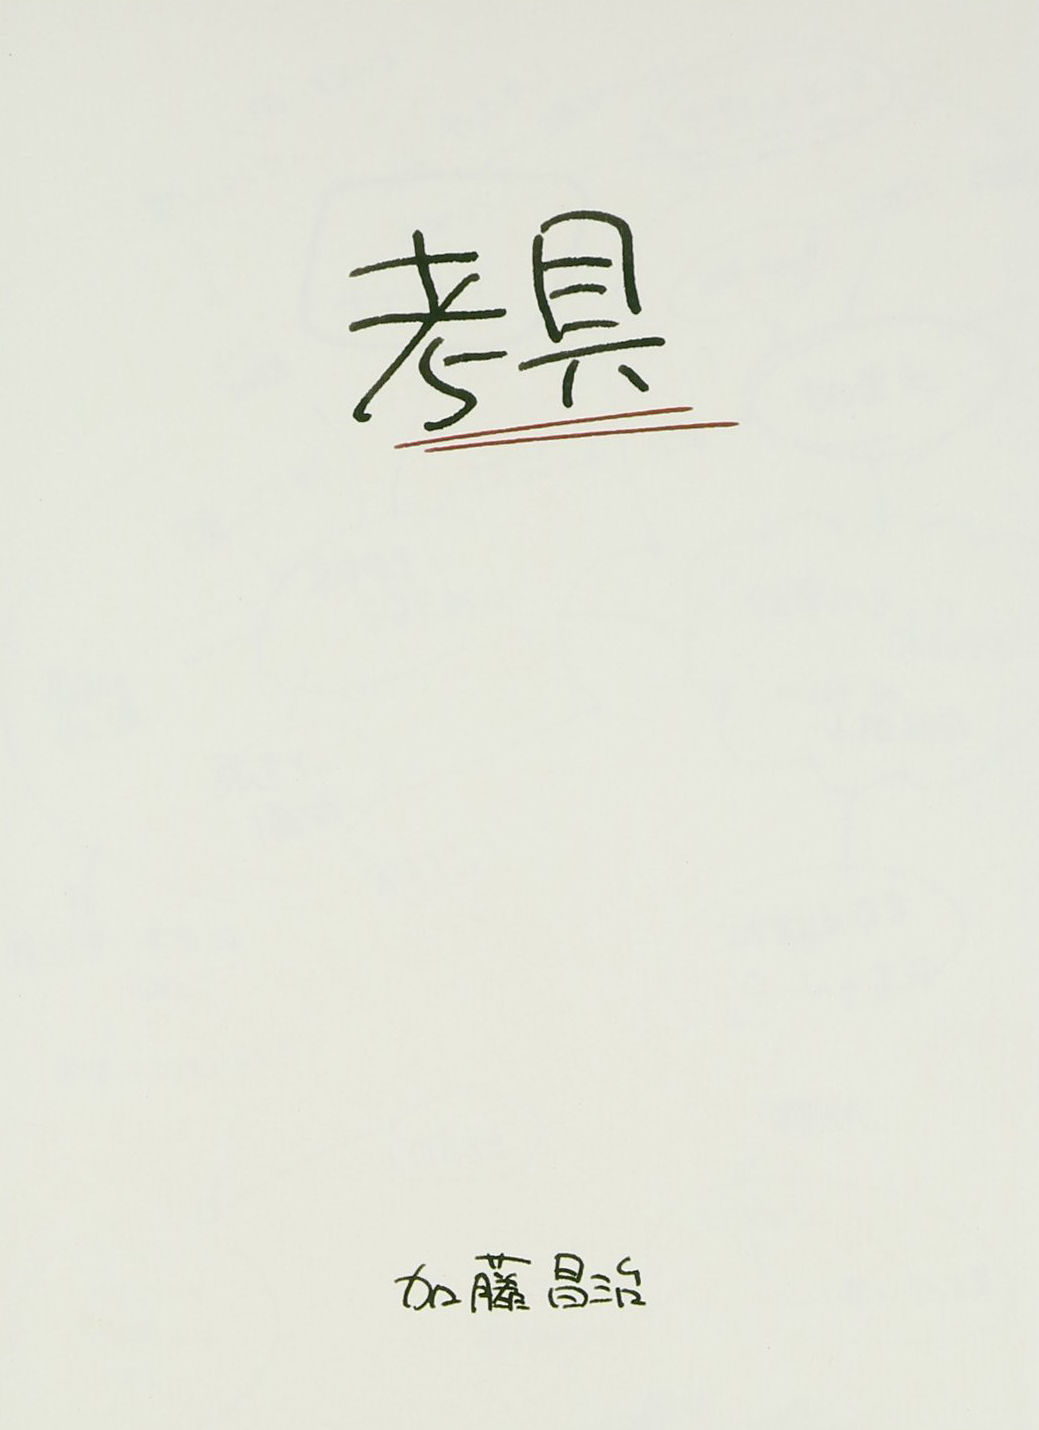 考具
加藤昌治